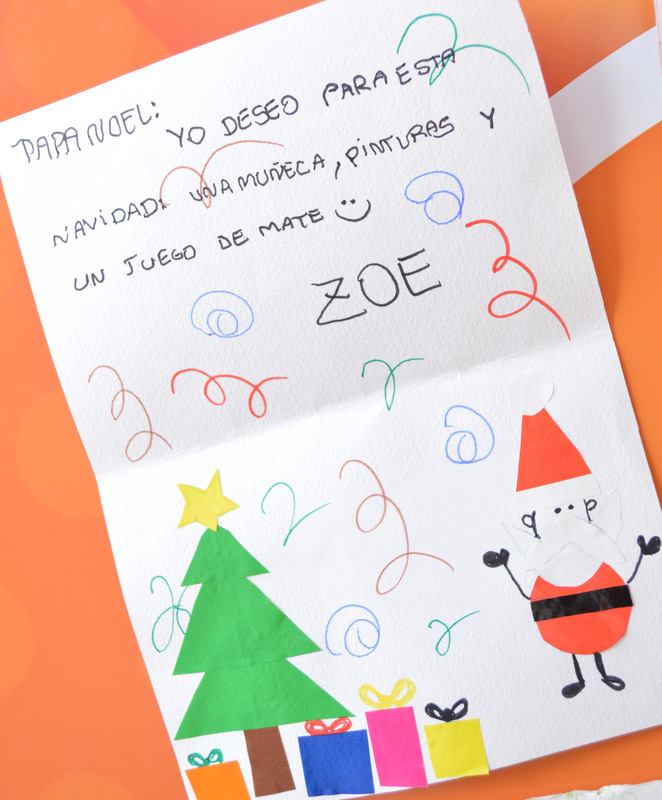 PAPA NOEL: YO DESEO PARA ESTA
NAVIDAD: UNA MUÑECA, PINTURAS Y
UN JUEGO DE MATE
ZOE